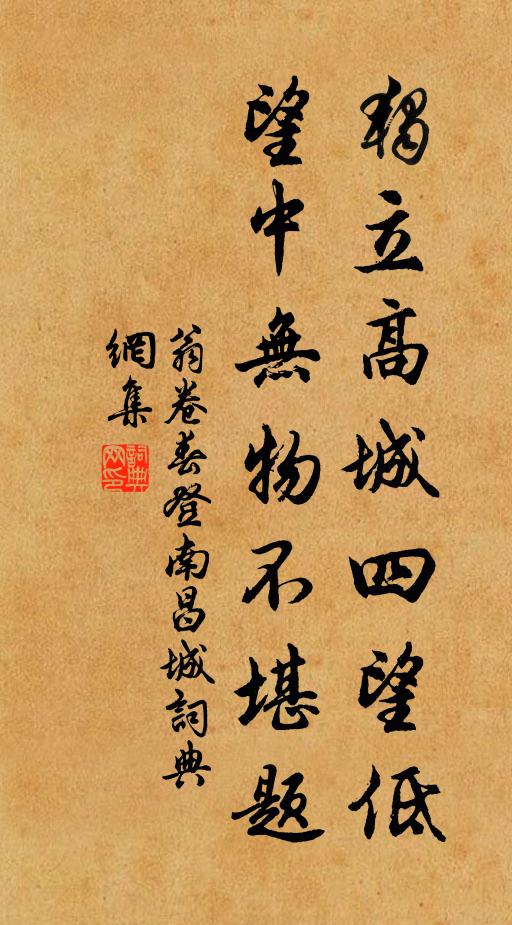 獨立高城四望低
望中無物不堪題
翁卷春登南昌城詞典
網集
詞典
网印